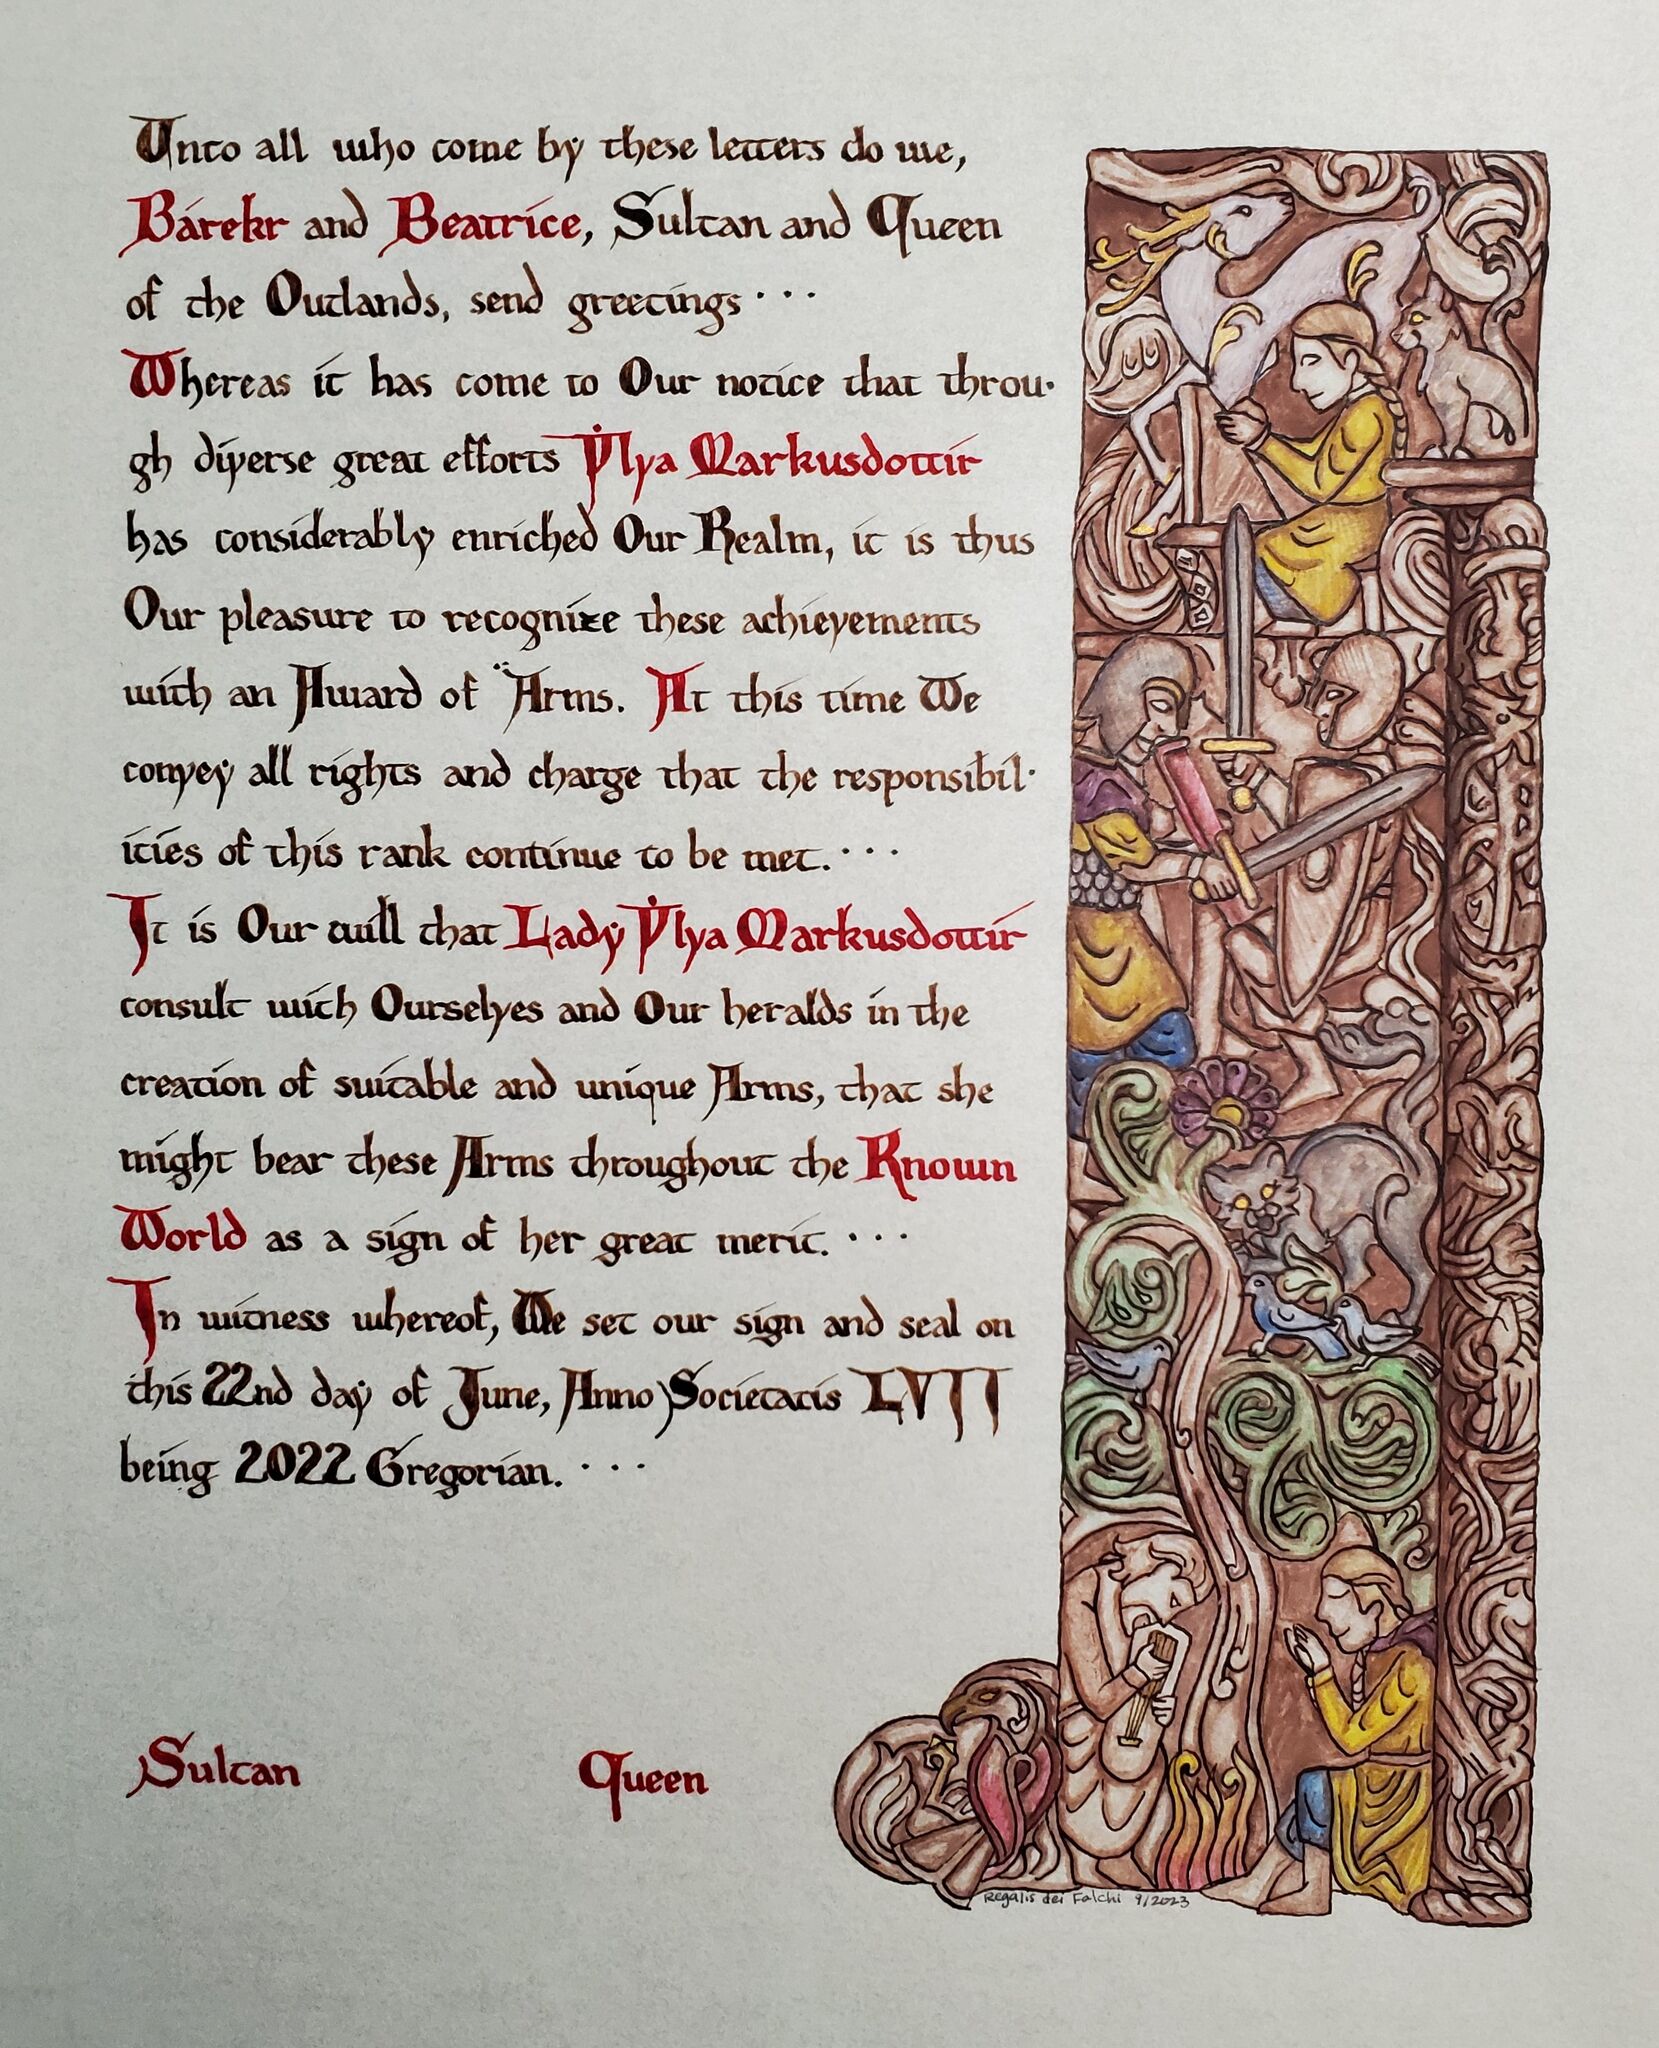 Unto all who come by these letters do we,
Bárekr and Beatrice, Sultan and Queen
of the Outlands, send greetings · · ·
Whereas it has come to Our notice that throu·
gh diverse great efforts Ylva Markusdottir
has considerably enriched Our Realm, it is thus
Our pleasure to recognize these achievements
with an Award of Arms. At this time We
convey all rights and charge that the responsibil·
ities of this rank continue to be met. · · ·
It is Our will that Lady Ylva Markusdottir
consult with Ourselves and Our heralds in the
creation of suitable and unique Arms, that she
might bear these Arms throughout the Known
World as a sign of her great merit. · · ·
In witness whereof, We set our sign and seal on
this 22nd day of June, Anno Societatis LVII
being 2022 Gregorian. · · ·
Sultan Queen
Regalis dei Falchi 9/2023